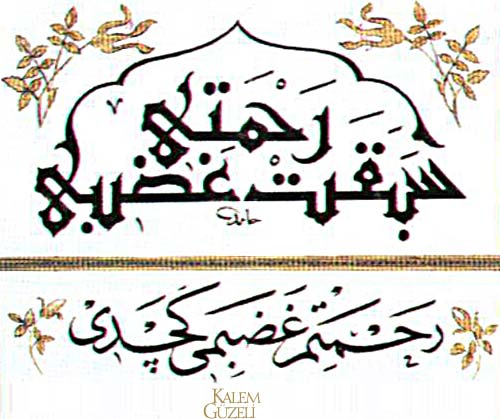 رَحْمَتِى
سَبَقَتْ غَضَبِى
حامد
رحمتم غضبمى كچدى
KALEM
GÜZELİ